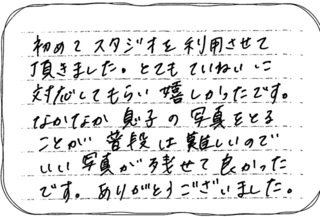 初めてスタジオを利用させて
頂きました。とてもていねいに
対応してもらい嬉しかったです。
なかなか息子の写真をとる
ことが普段は難しいので
いい写真が残せて良かった
です。ありがとうございました。